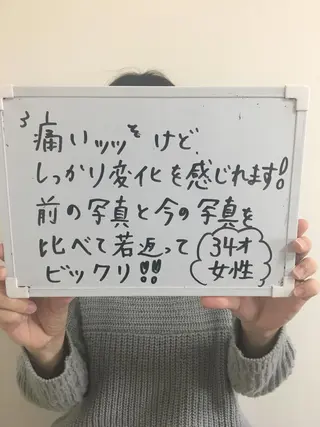 痛いッッけど
しっかり変化を感じれます!
前の写真と今の写真を
比べて若返って
ビックリ!!
34才
女性